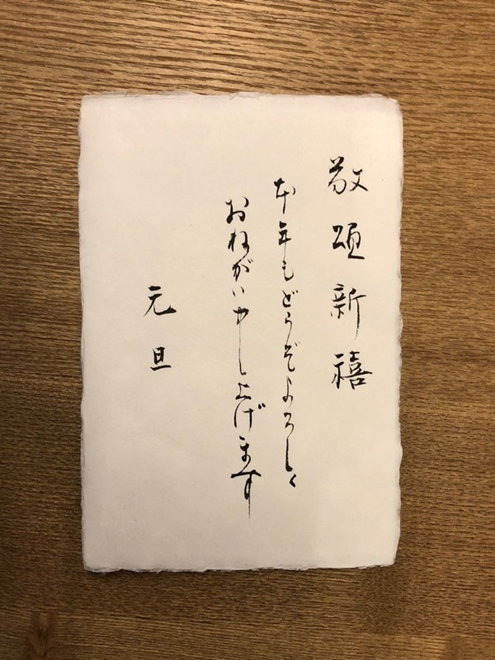 敬頌新禧
本年もどうぞよろしく
おねがい申し上げます
元旦